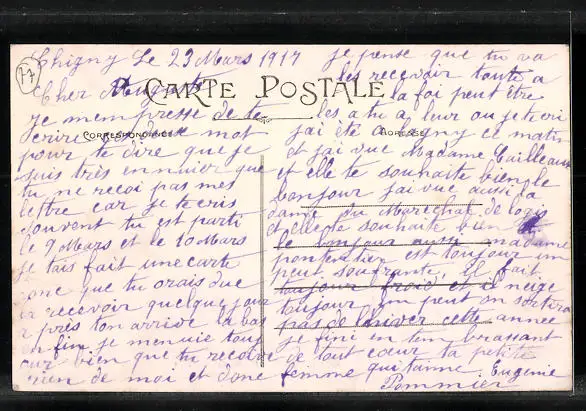 77
Thigny Le 23 Mars 1917
Cher Auguste
CARTE POSTALE
CORRESPONDANCE
ADRESSE
je mempresse de te
ecrire ces deux mot
pour te dire que je
suis très ennuier que
tu ne recoi pas mes
lettre car je tecris
souvent tu est parti
le 9 Mars et le 10 Mars
je tais fait une carte
donc que tu orais due
la recevoir quelque jour
a près ton arrive la bas
en fin je mennuie tous
jour bien que tu recoive
rien de moi et donc
je pense que tu va
les recevoir toute a
la foi peut être
les a tu a leur ou je tecri
jai été a ce matin
et jai vue Madame Cailleaux
et elle te souhaite bien le
bonjour jai vue aussi la
dame du Marechal de logis
et elle te souhaite bien
le bonjour aussi madame
est toujour un
peut soufrante, il fait
toujour froid et il neige
toujour on peut on sortira
pas de lhiver cette année
je fini en tem brassant
de tout cœur ta petite
femme qui taime Eugenie
Pommier